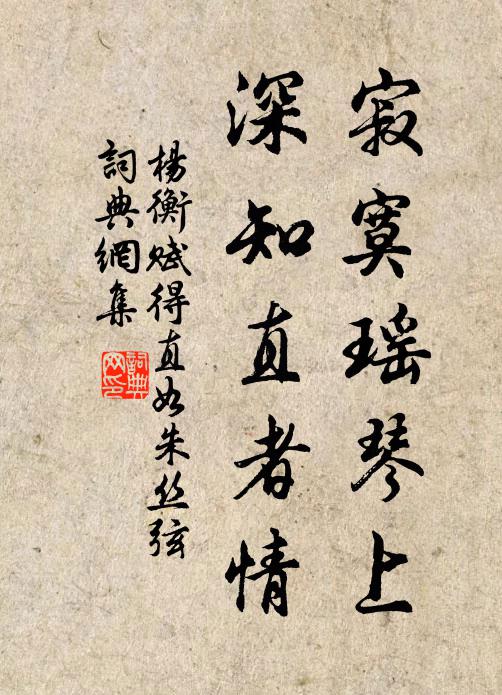 寂寞瑶琴上
深知直者情
楊衡赋得直如朱丝弦
詞典網集
詞典
网印